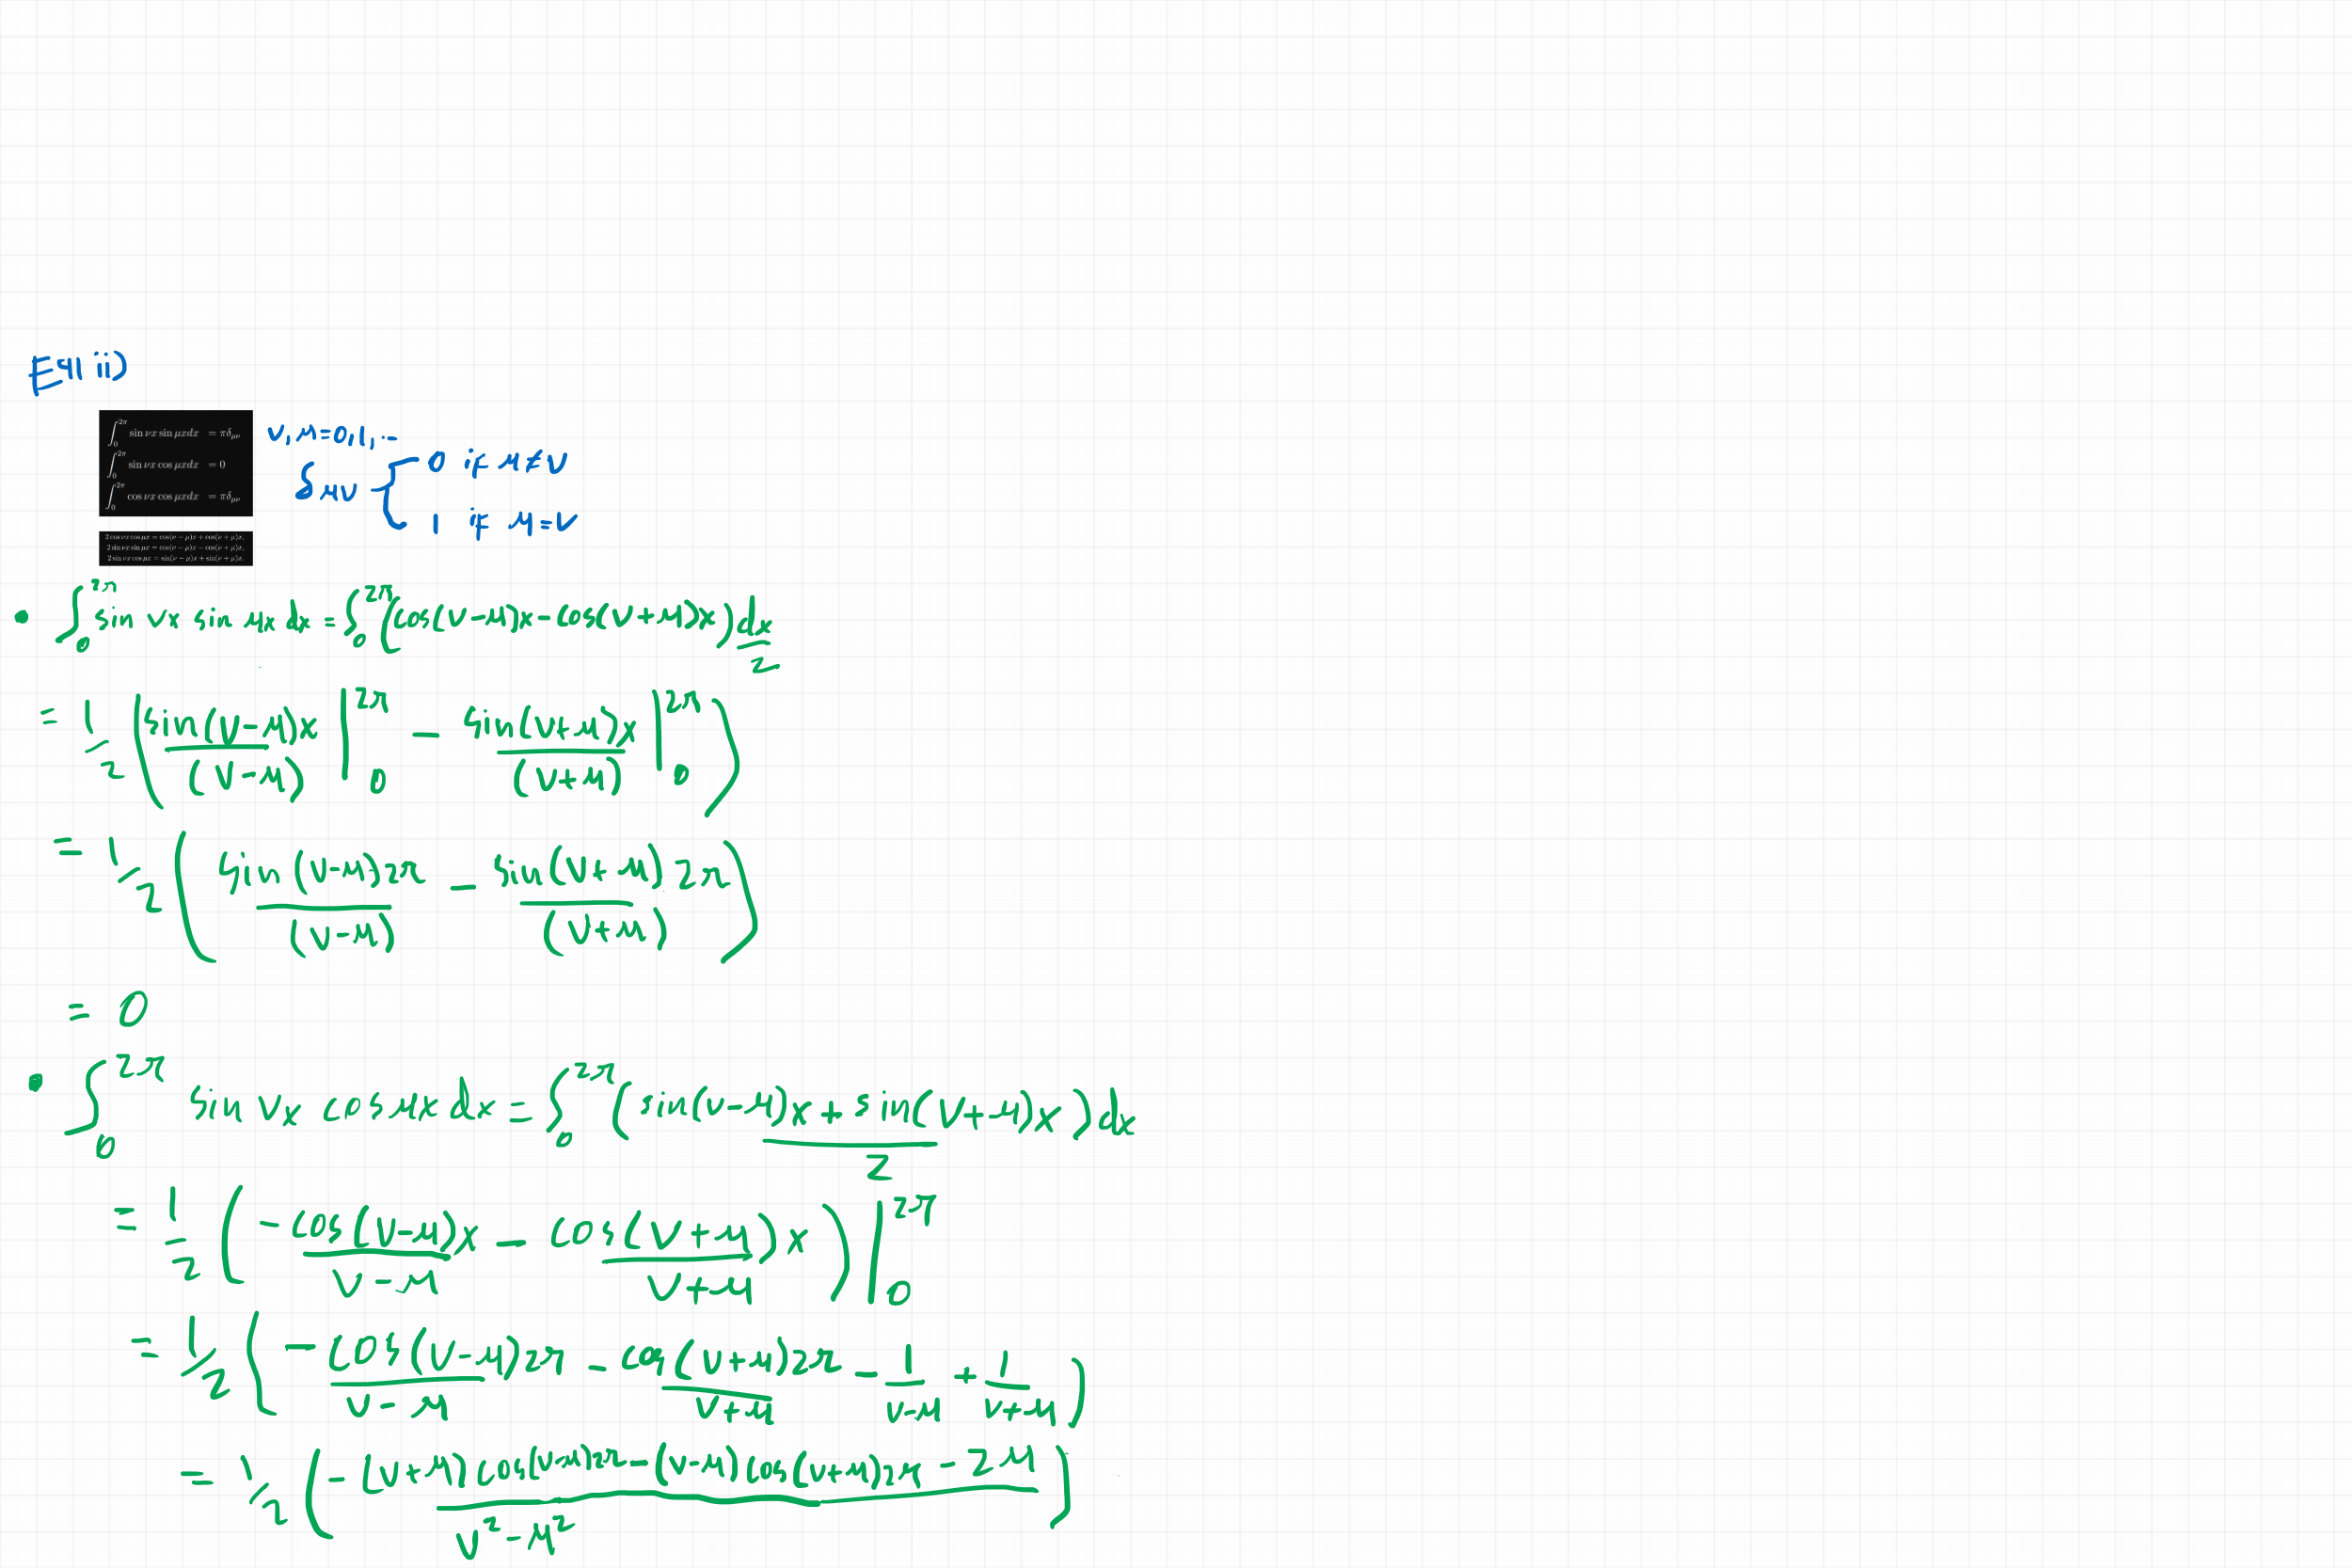 E41 ii)
∫_0^{2π} sin νx sin μxdx = πδ_{μν}
∫_0^{2π} sin νx cos μxdx = 0
∫_0^{2π} cos νx cos μxdx = πδ_{μν}
ν, μ=0,1,..
δ_{μν} { 0 if μ≠ν
1 if μ=ν
2 cos νx cos μx = cos(ν − μ)x + cos(ν + μ)x,
2 sin νx sin μx = cos(ν − μ)x − cos(ν + μ)x,
2 sin νx cos μx = sin(ν − μ)x + sin(ν + μ)x.
• ∫_0^{2π} sin νx sin μx dx = ∫_0^{2π} (cos(ν-μ)x - cos(ν+μ)x) dx/2
= 1/2 ( sin(ν-μ)x/(ν-μ) |_0^{2π} - sin(ν+μ)x/(ν+μ) |_0^{2π} )
= 1/2 ( sin(ν-μ)2π/(ν-μ) - sin(ν+μ)2π/(ν+μ) )
= 0
• ∫_0^{2π} sin νx cos μx dx = ∫_0^{2π} (sin(ν-μ)x + sin(ν+μ)x)dx/2
= 1/2 ( - cos(ν-μ)x/(ν-μ) - cos(ν+μ)x/(ν+μ) ) |_0^{2π}
= 1/2 ( - cos(ν-μ)2π/(ν-μ) - cos(ν+μ)2π/(ν+μ) - 1/(ν-μ) + 1/(ν+μ) )
= 1/2 ( (-(ν+μ)cos(ν-μ)2π - (ν-μ)cos(ν+μ)2π - 2μ)/(ν²-μ²) )